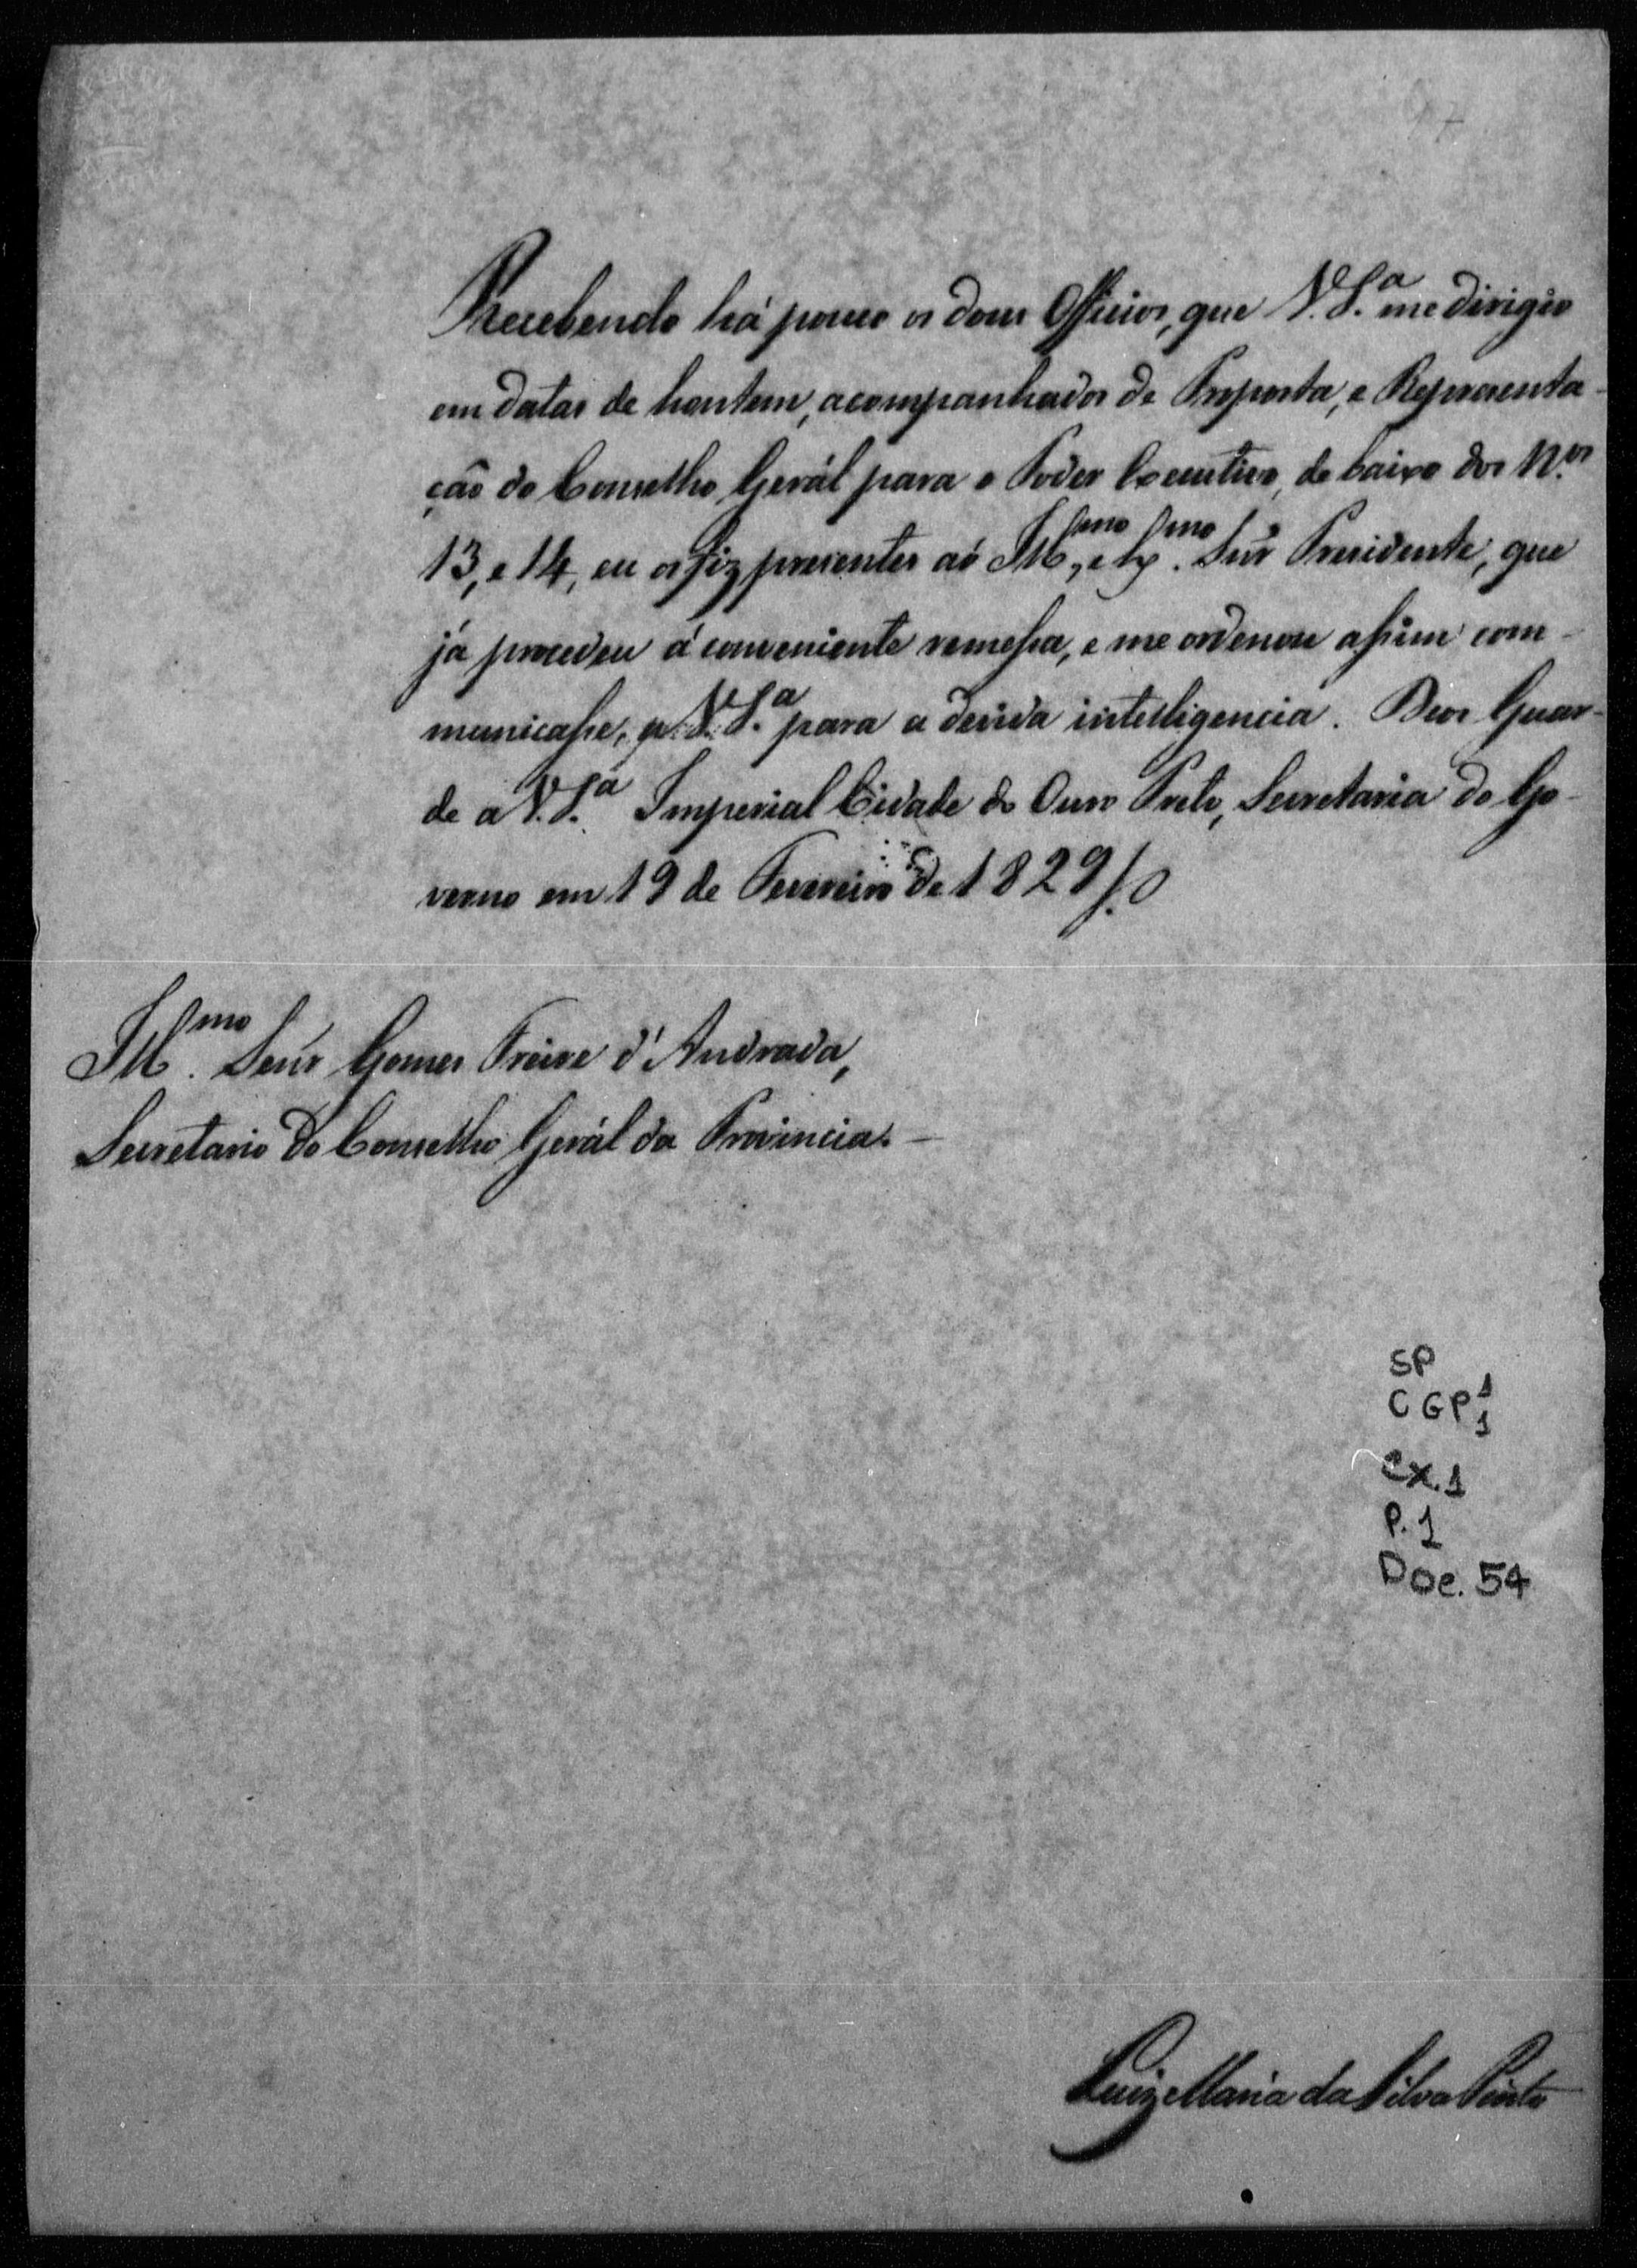 Recebendo há pouco os dous Officios, que V. S.ª me dirigio
em datas de hontem, acompanhados de Proposta, e Representa-
ção do Conselho Gerál para o Poder Executivo, de baixo dos N.os
13, e 14, eu os fiz presentes aó Ill.mo, e Ex.mo Snr̃ Presidente, que
já procedeu á conveniente remessa, e me ordenou assim com-
municasse, a V. S.ª para a devida intelligencia. Deos Guar-
de a V. S.ª Imperial Cidade do Ouro Preto, Secretaria do Go-
verno em 19 de Fevereiro de 1829 /.
Ill.mo Senr̃ Gomes Freire d'Andrada,
Secretario do Conselho Gerál da Provincia. —
SP
CGP 1
1
Cx. 1
P. 1
Doc. 54
Luiz Maria da Silva Pinto